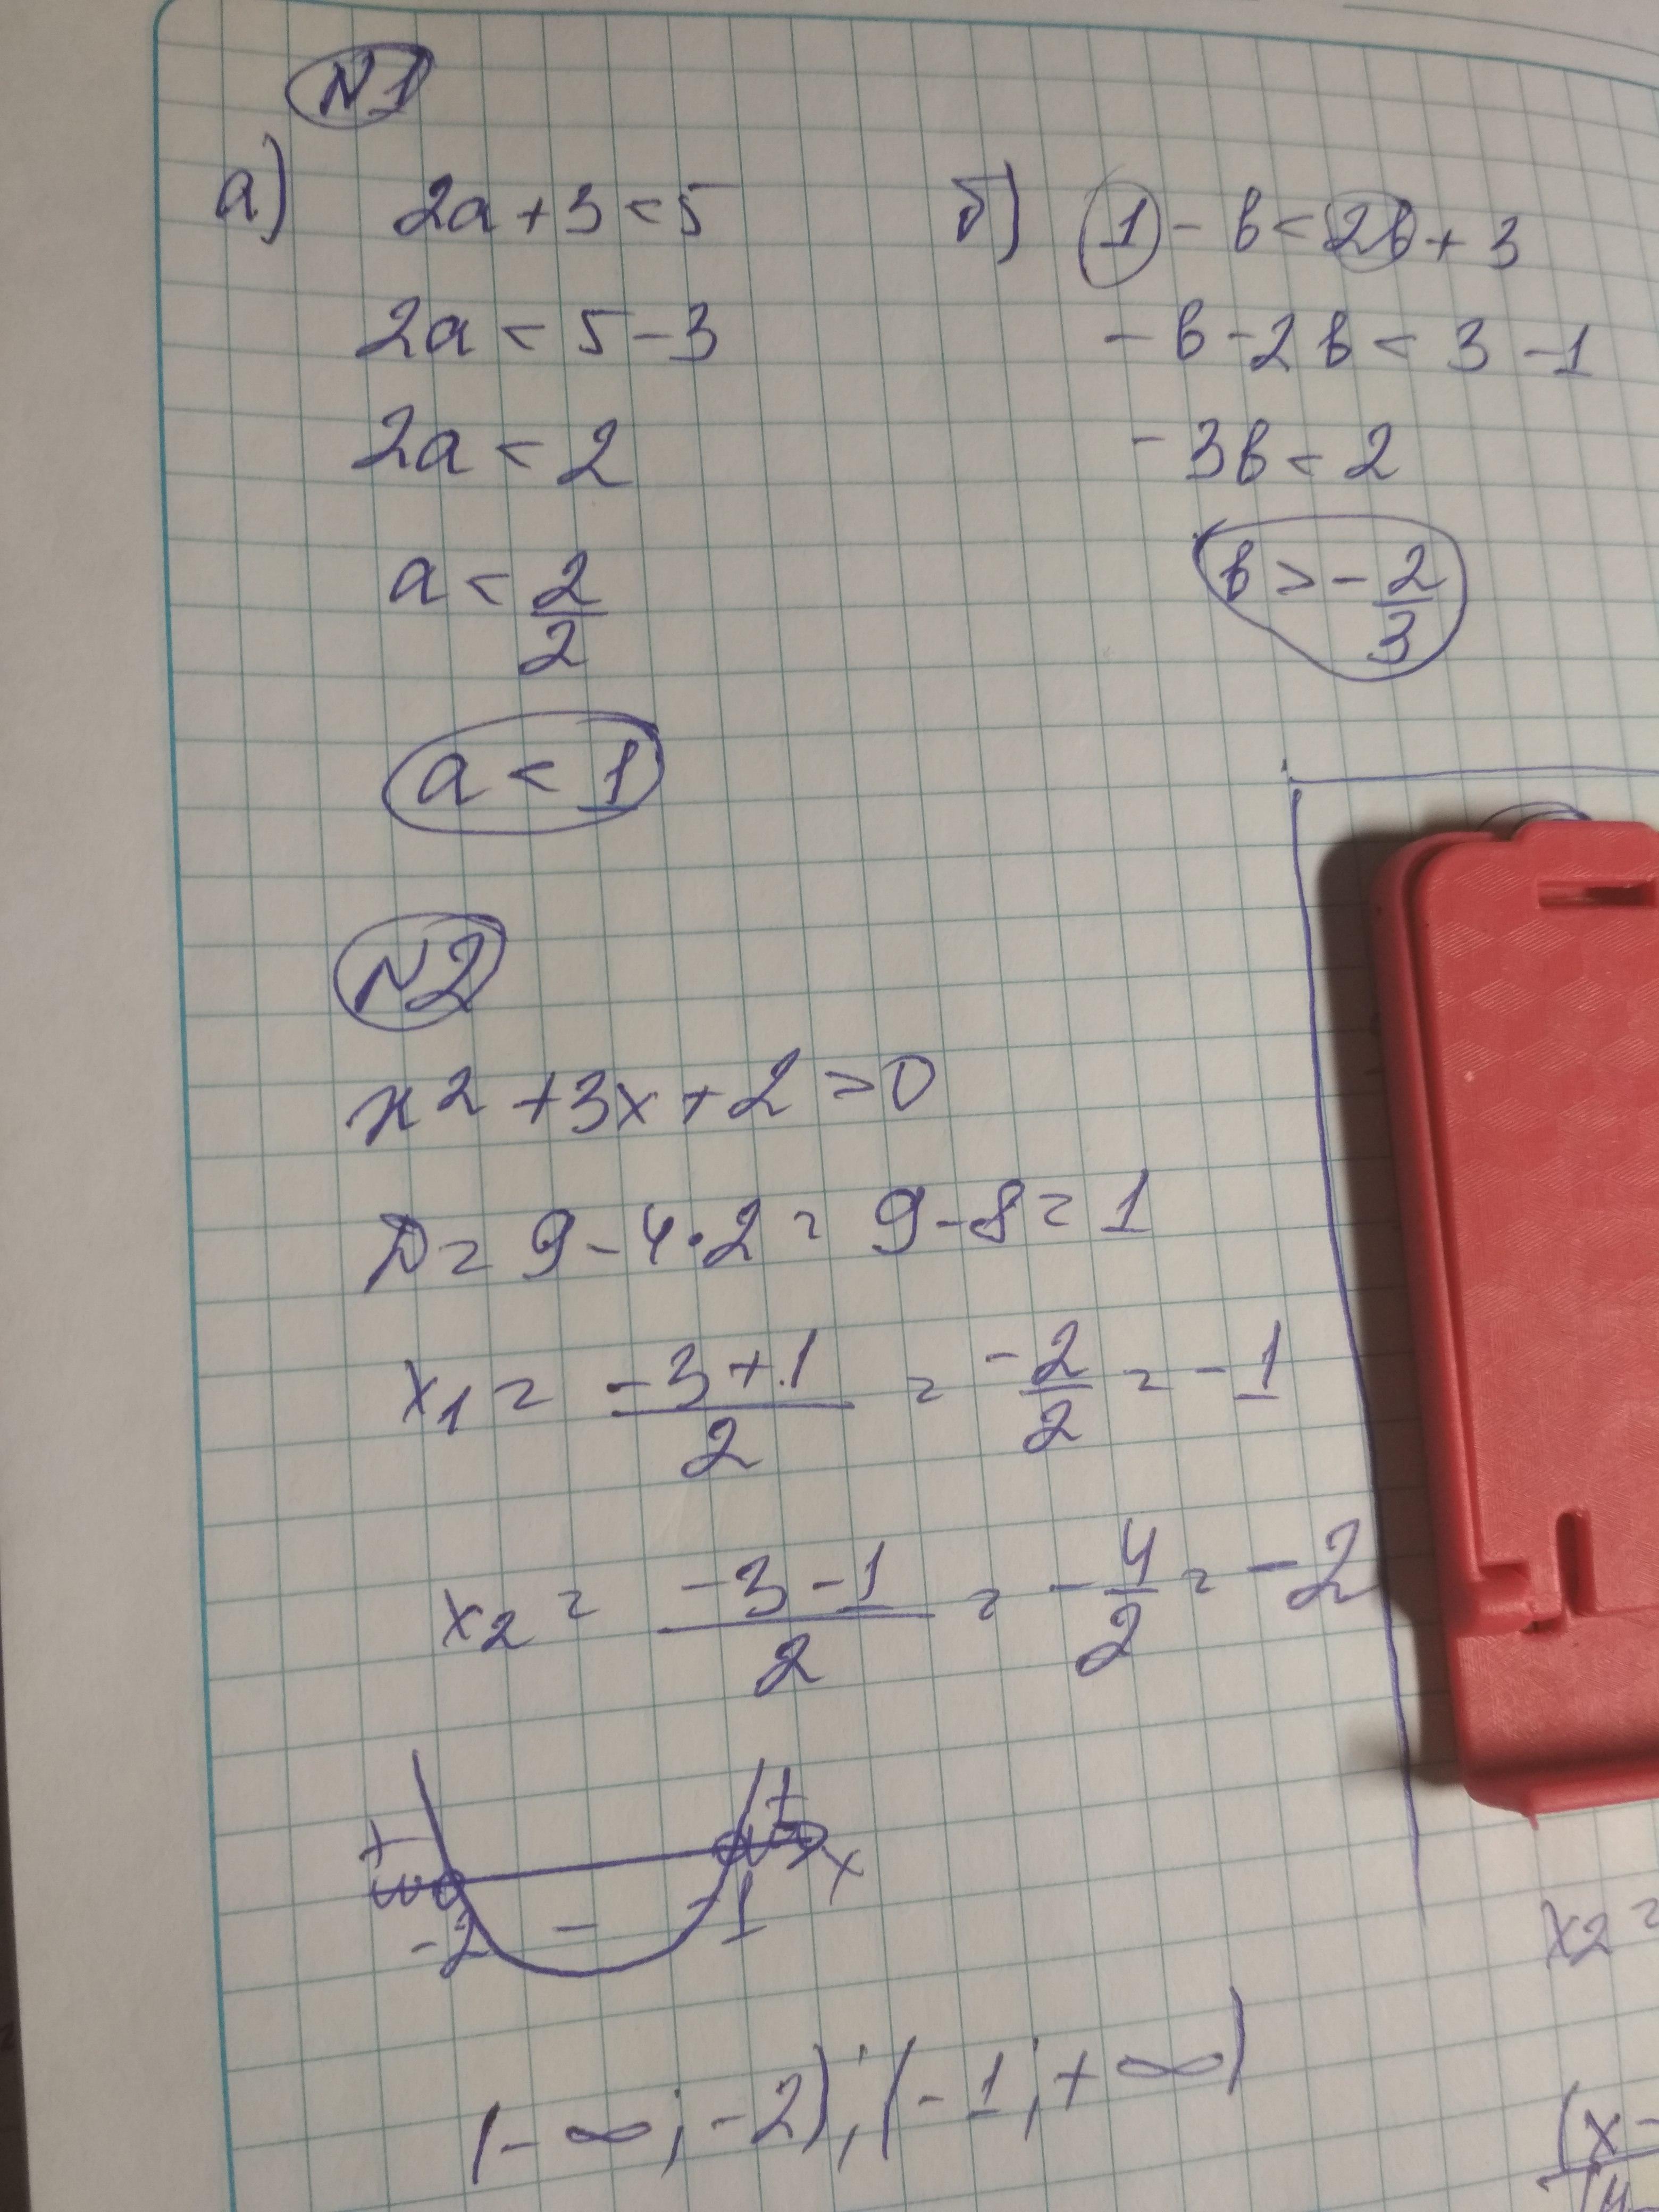 N1
а) 2a + 3 < 5
2a < 5 - 3
2a < 2
a < 2/2
a < 1
б) 1 - b < 2b + 3
- b - 2b < 3 - 1
- 3b < 2
b > - 2/3
N2
x² + 3x + 2 > 0
D = 9 - 4 · 2 = 9 - 8 = 1
x₁ = (-3 + 1)/2 = -2/2 = -1
x₂ = (-3 - 1)/2 = -4/2 = -2
+ + x
-2 - -1
(-∞; -2); (-1; +∞)
x₂ =
(x -